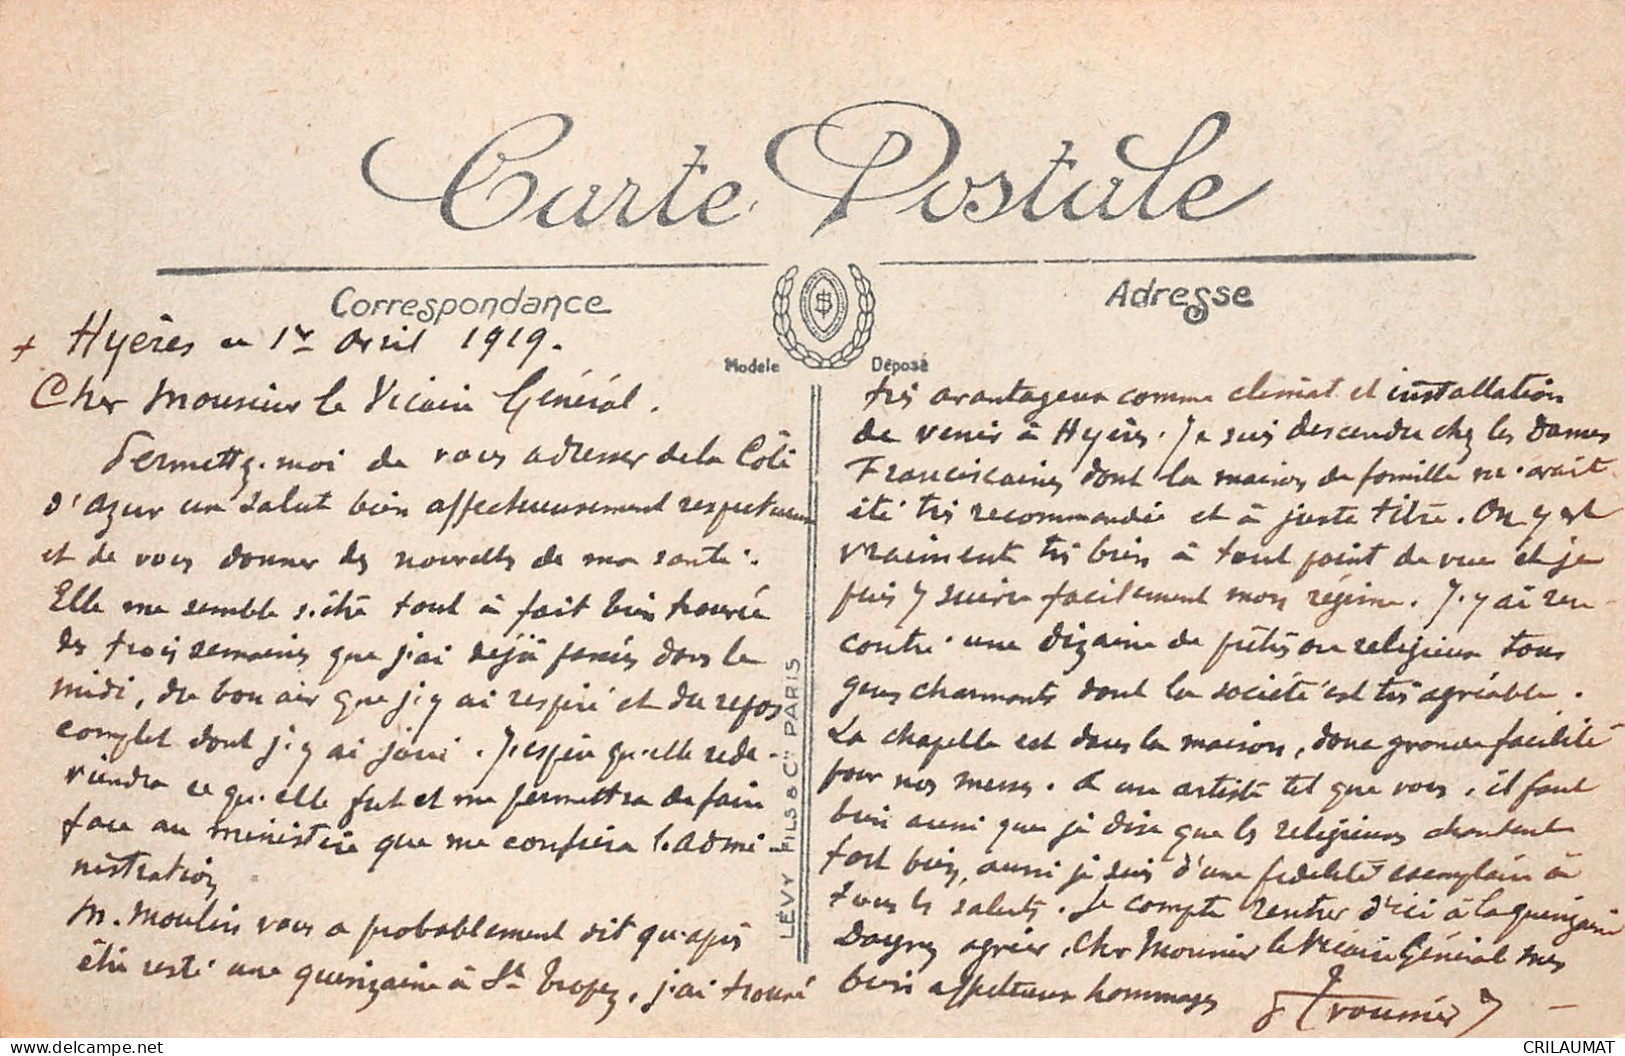 Carte Postale
Correspondance
Adresse
Modèle Déposé
LÉVY FILS & Cie PARIS
+ Hyères le 1er Avril 1919.
Cher Monsieur le Vicaire Général.
Permettez-moi de vous adresser de la Côte
d'Azur un salut bien affectueusement respectueux
et de vous donner des nouvelles de ma santé.
Elle me semble s'être tout à fait bien trouvée
des trois semaines que j'ai déjà passées dans le
midi, du bon air que j'y ai respiré et du repos
complet dont j'y ai joui. J'espère qu'elle rede-
viendra ce qu'elle fut et me permettra de faire
face au ministère que me confiera l'Admi-
nistration
M. Moulin vous a probablement dit qu'après
être resté une quinzaine à St Tropez, j'ai trouvé
très avantageux comme climat et installation
de venir à Hyères. Je suis descendu chez les Dames
Franciscaines dont la maison de famille m'avait
été très recommandée et à juste titre. On y est
vraiment très bien à tout point de vue et je
puis y suivre facilement mon régime. J'y ai ren-
contré une dizaine de prêtres ou religieux tous
gens charmants dont la société est très agréable.
La chapelle est dans la maison, donc grande facilité
pour nos messes. A un artiste tel que vous, il faut
bien aussi que je dise que les religieuses chantent
fort bien, aussi je suis d'une fidélité exemplaire à
tous les saluts. Je compte rentrer d'ici à la quinzaine
Daignez agréer, Cher Monsieur le Vicaire Général mes
bien affectueux hommages
CRILAUMAT